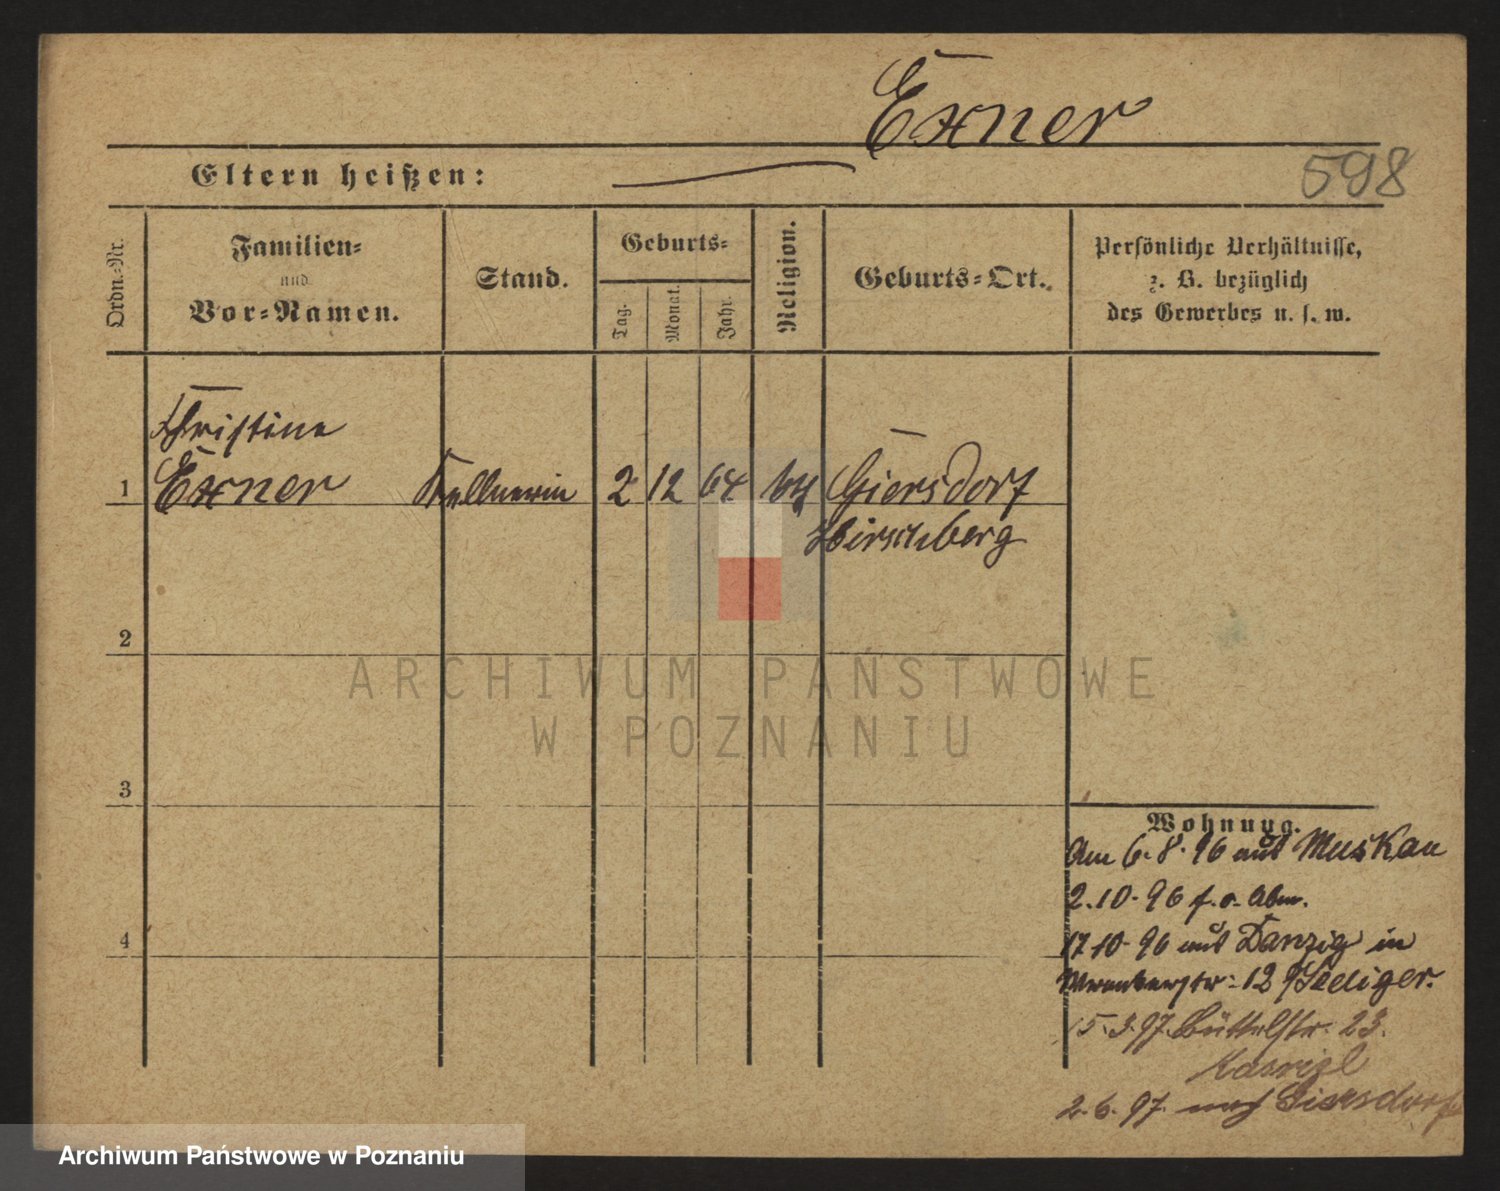 Exner
Eltern heißen:
598
Ordn.-Nr.
Familien-
und
Vor-Namen.
Stand.
Geburts-
Tag.
Monat.
Jahr.
Religion.
Geburts-Ort.
Persönliche Verhältnisse,
z. B. bezüglich
des Gewerbes u. s. w.
Christine
1 Exner Kellnerin 2 12 64 Giersdorf
Hirschberg
2
3
4
Wohnung.
Am 6. 8. 96 aus Muskau
2. 10. 96 f. o. Abm.
17 10. 96 aus Danzig in
12
15. 3. 97. Büttelstr. 23.
2. 6. 97. nach Giersdorf
ARCHIWUM PAŃSTWOWE
W POZNANIU
Archiwum Państwowe w Poznaniu